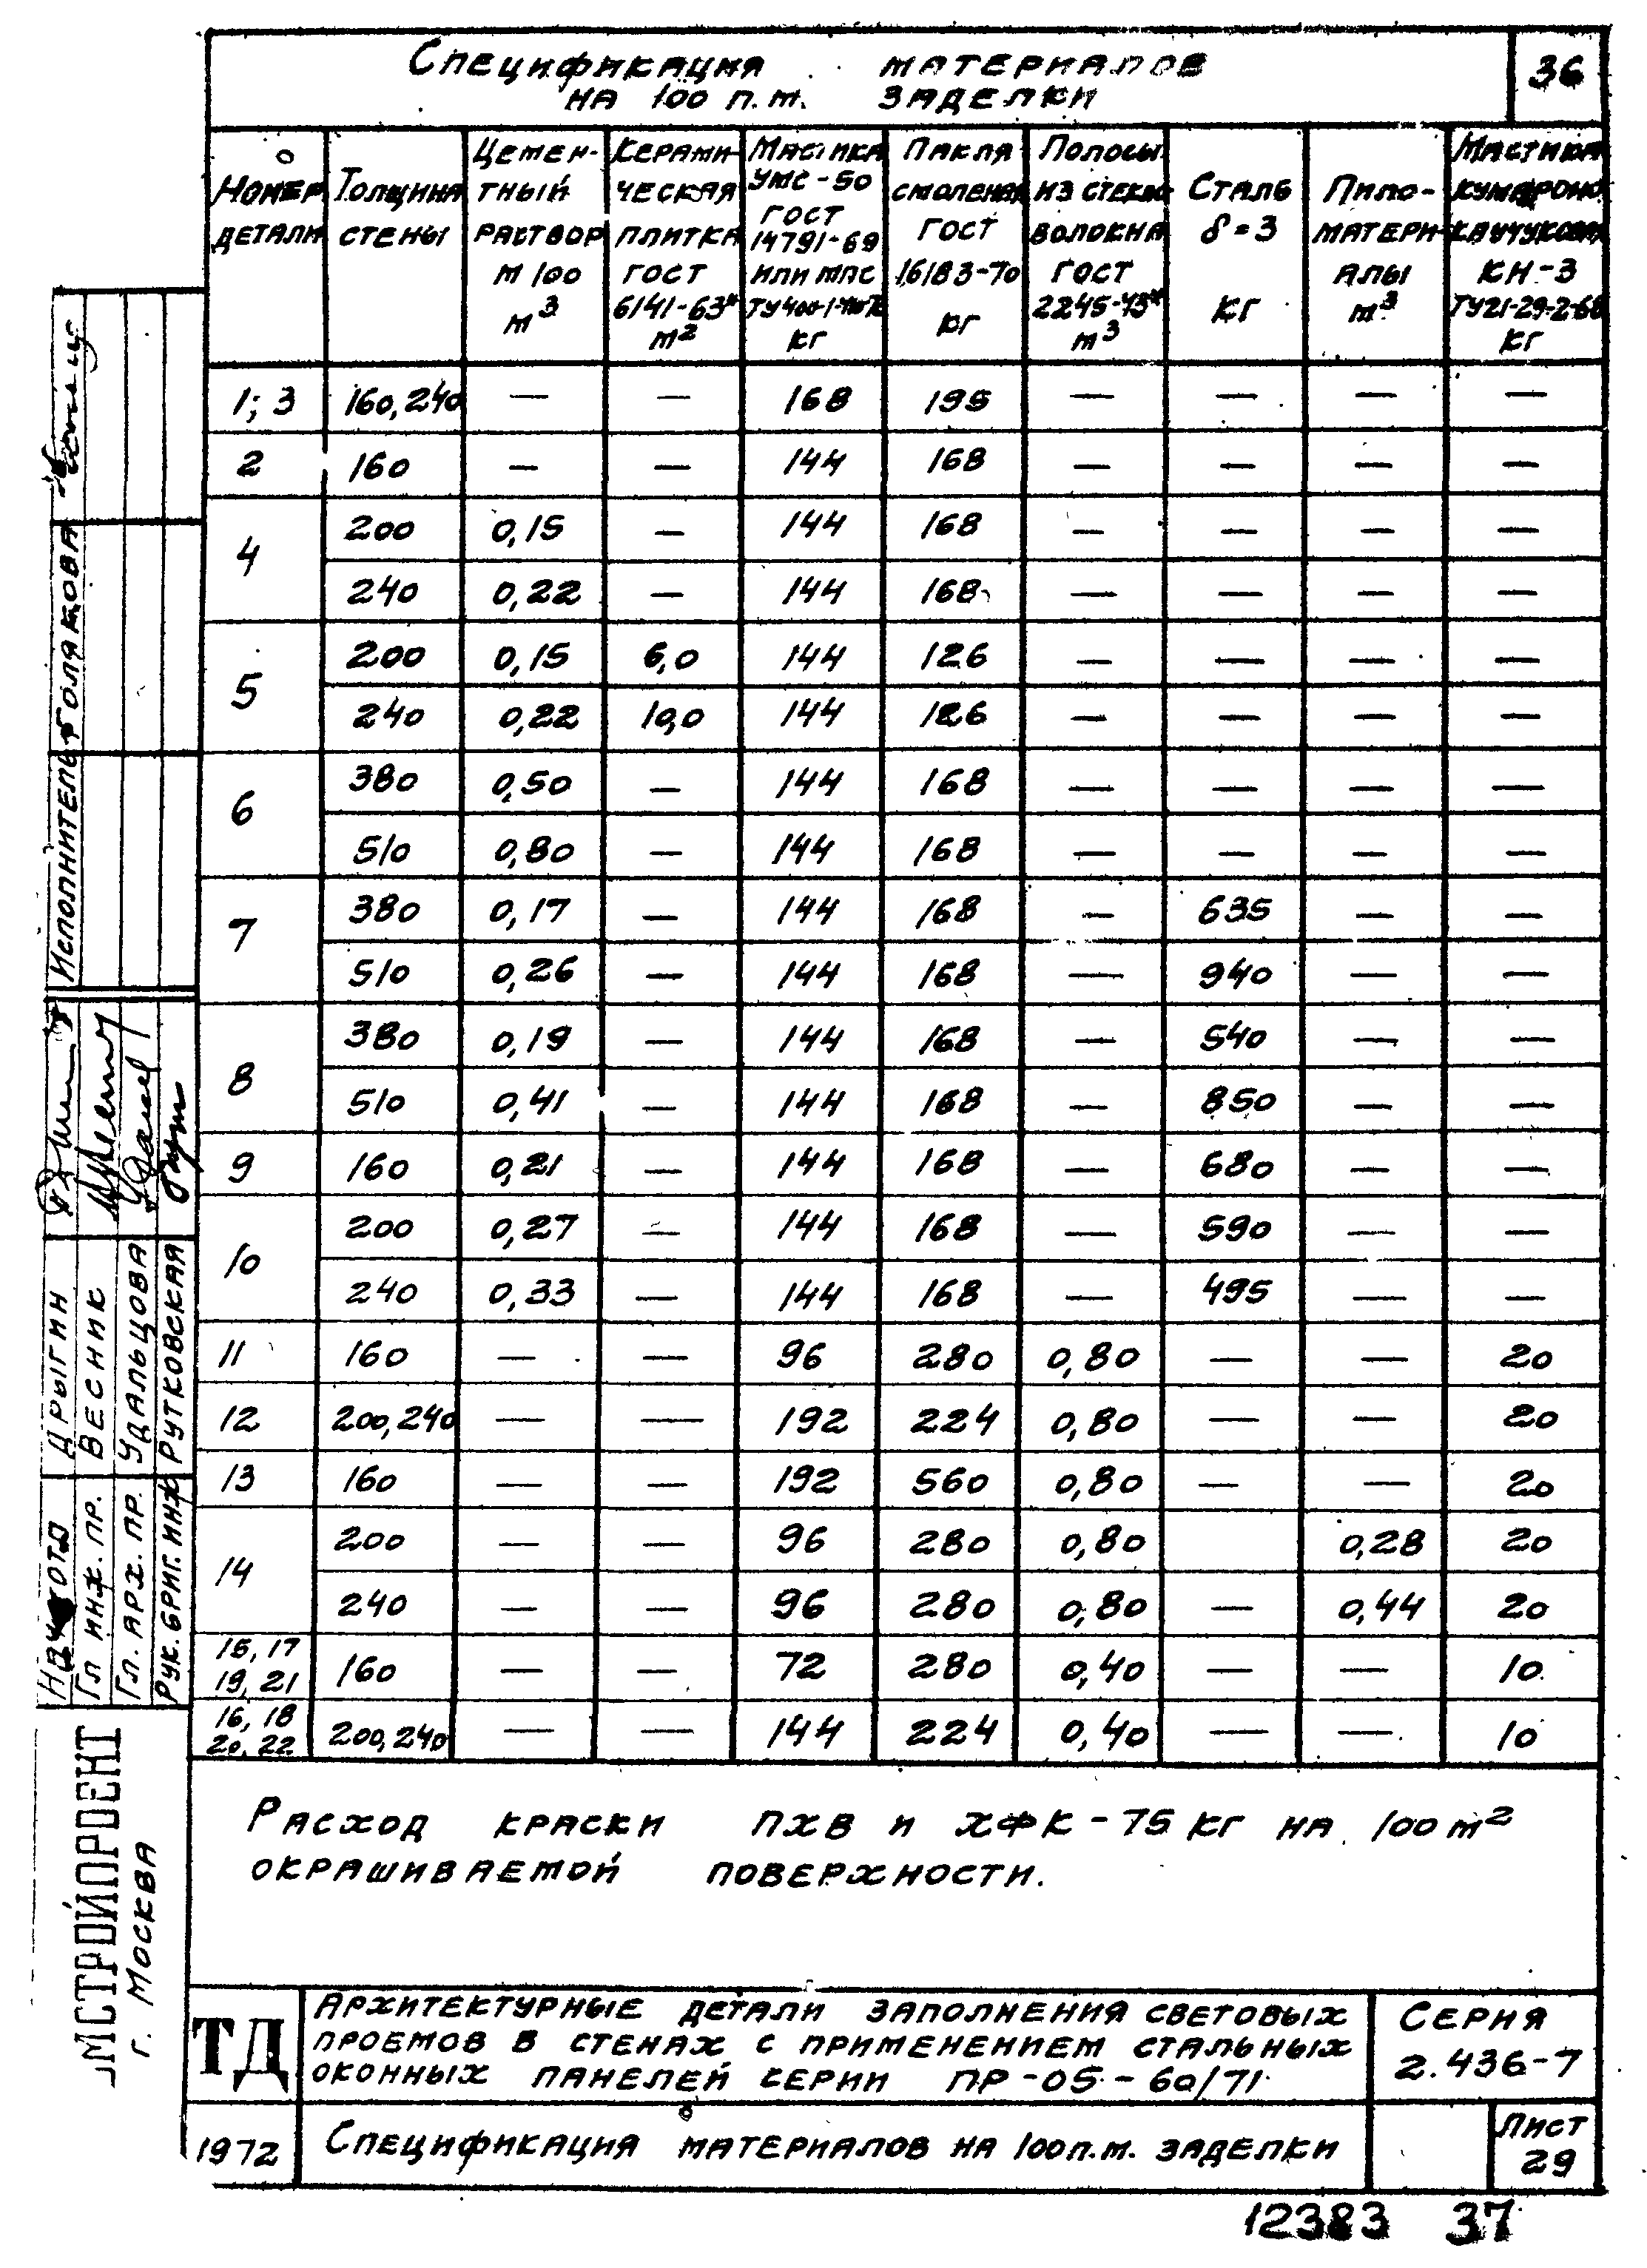 Спецификация материалов
на 100 п.м. заделки
36
Номер детали | Толщина стены | Цементный раствор М 100 м³ | Керамическая плитка ГОСТ 6141-63* м² | Мастика УМС-50 ГОСТ 14791-69 или МПС кг | Пакля смоленая ГОСТ 16183-70 кг | Полосы из стекловолокна ГОСТ 2245-43* м³ | Сталь δ=3 кг | Пиломатериалы м³ | Мастика кумароно-каучуковая КН-3 ТУ21-29-2-68 кг
1; 3 | 160, 240 | — | — | 168 | 195 | — | — | — | —
2 | 160 | — | — | 144 | 168 | — | — | — | —
4 | 200 | 0,15 | — | 144 | 168 | — | — | — | —
240 | 0,22 | — | 144 | 168 | — | — | — | —
5 | 200 | 0,15 | 6,0 | 144 | 126 | — | — | — | —
240 | 0,22 | 10,0 | 144 | 126 | — | — | — | —
6 | 380 | 0,50 | — | 144 | 168 | — | — | — | —
510 | 0,80 | — | 144 | 168 | — | — | — | —
7 | 380 | 0,17 | — | 144 | 168 | — | 635 | — | —
510 | 0,26 | — | 144 | 168 | — | 940 | — | —
8 | 380 | 0,19 | — | 144 | 168 | — | 540 | — | —
510 | 0,41 | — | 144 | 168 | — | 850 | — | —
9 | 160 | 0,21 | — | 144 | 168 | — | 680 | — | —
10 | 200 | 0,27 | — | 144 | 168 | — | 590 | — | —
240 | 0,33 | — | 144 | 168 | — | 495 | — | —
11 | 160 | — | — | 96 | 280 | 0,80 | — | — | 20
12 | 200, 240 | — | — | 192 | 224 | 0,80 | — | — | 20
13 | 160 | — | — | 192 | 560 | 0,80 | — | — | 20
14 | 200 | — | — | 96 | 280 | 0,80 | | 0,28 | 20
240 | — | — | 96 | 280 | 0,80 | — | 0,44 | 20
15, 17 19, 21 | 160 | — | — | 72 | 280 | 0,40 | — | — | 10
16, 18 20, 22 | 200, 240 | — | — | 144 | 224 | 0,40 | — | — | 10
Расход краски ПХВ и ХФК - 75 кг на 100 м²
окрашиваемой поверхности.
ТД
1972
Архитектурные детали заполнения световых
проемов в стенах с применением стальных
оконных панелей серии ПР-05-60/71
Серия
2.436-7
Спецификация материалов на 100 п.м. заделки
Лист
29
12383 37
Исполнитель Полякова
Дрыгин
Гл инж. пр. Весник
Гл. арх. пр. Удальцова
Рук. бриг. инж Рутковская
мстройпроект
г. Москва